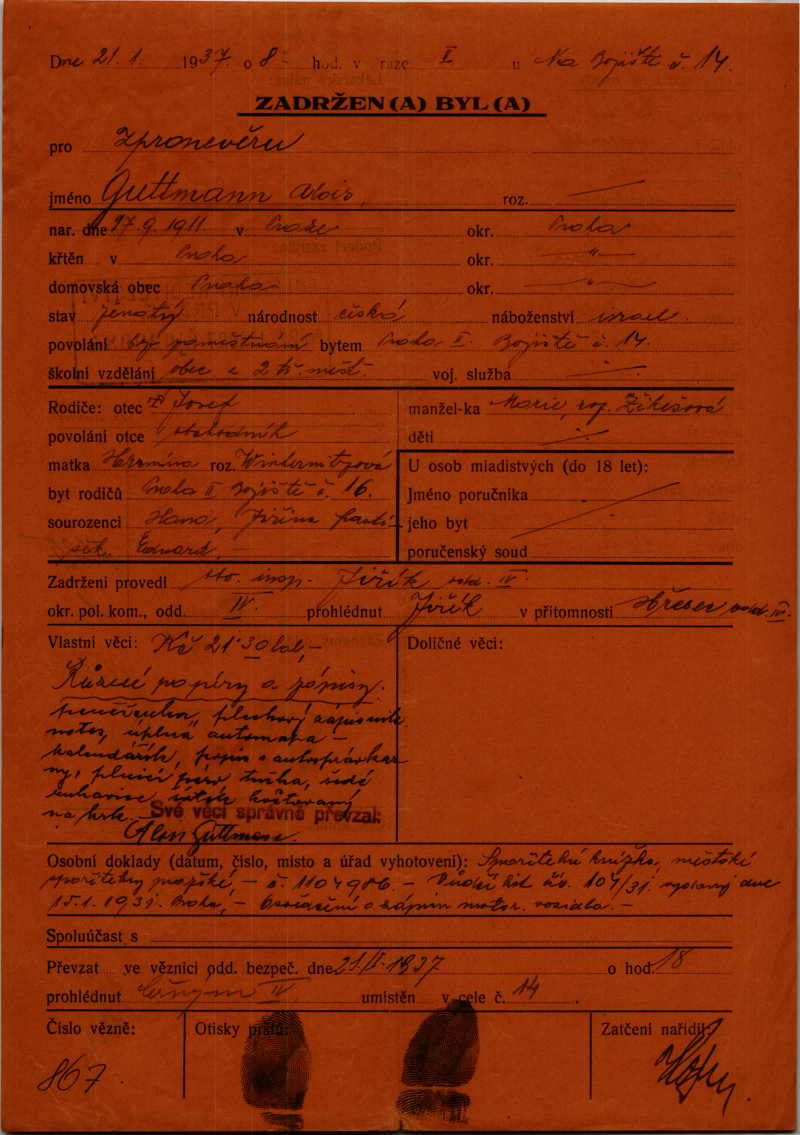 Dne 21. 1. 1937 o 8 hod. v Praze II u Na Bojišti č. 14.
ZADRŽEN (A) BYL (A)
pro Zpronevěru
jméno Guttmann Alois, roz.
nar. dne 17. 9. 1911 v Praze okr. Praha
křtěn v Praha okr. "
domovská obec Praha okr. "
stav ženatý národnost česká náboženství israel.
povolání bez zaměstnání bytem Praha II. Bojiště č. 14.
školní vzdělání obec a 2 tř. měšť. voj. služba
Rodiče: otec Josef manžel-ka Marie, roz.
povolání otce obchodník děti
matka Hermina roz. Winternitzová U osob mladistvých (do 18 let):
byt rodičů Praha II Bojiště č. 16. Jméno poručníka
sourozenci Hana, Jiřina jeho byt
Eduard, poručenský soud
Zadržení provedl insp. Jiřík odd. IV.
okr. pol. kom., odd. IV. prohlédnut Jiřík v přítomnosti odd. IV.
Vlastní věci: Kč 21·30 hal, Doličné věci:
Různé papíry a zápisy.
plechový zápisník
notes, úplná automapa
kalendářík, popis
plnicí pero tužka, šedé
rukavice kostkovaný
na krk.
Své věci správně převzal:
Alois Guttmann.
Osobní doklady (datum, číslo, místo a úřad vyhotovení): Spořitelní knížka, městské
spořitelny pražské, č. 1104986. Vůdčí list čís. 107/31. vydaný dne
15. 1. 1931. Praha, Osvědčení o zápisu motor. vozidla.
Spoluúčast s
Převzat ve věznici odd. bezpeč. dne 21/I. 1937 o hod. 18
prohlédnut Černým IV umístěn v cele č. 14.
Číslo vězně: Otisky prstů: Zatčení nařídil:
867.